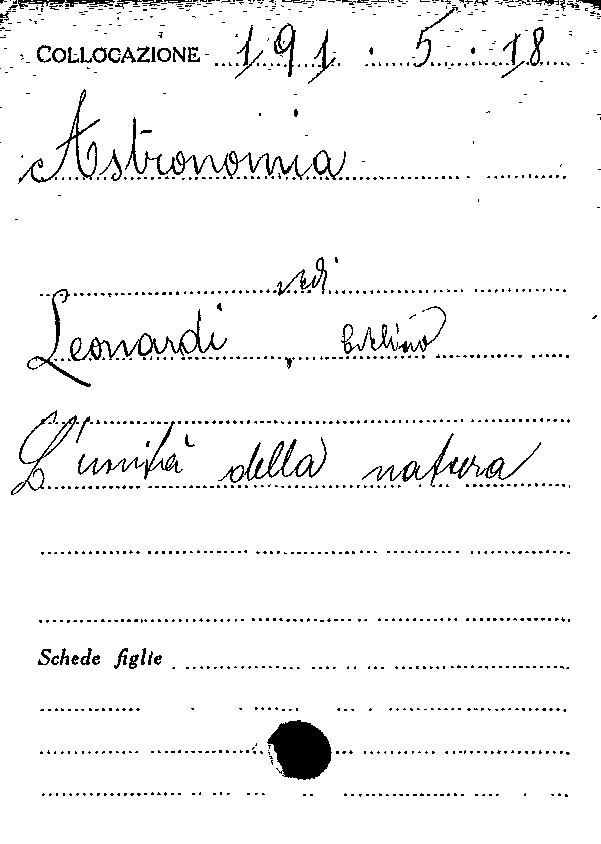 COLLOCAZIONE 191.5.18
Astronomia
vedi
Leonardi,
L'unità della natura
Schede figlie